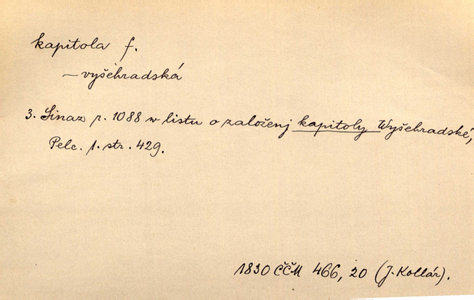 kapitola f.
— vyšehradská
3. Sinaz r. 1088 w listu o založenj kapitoly Wyšehradské,
Pelc. 1. str. 429.
1830 ČČM 466, 20 (J. Kollár).